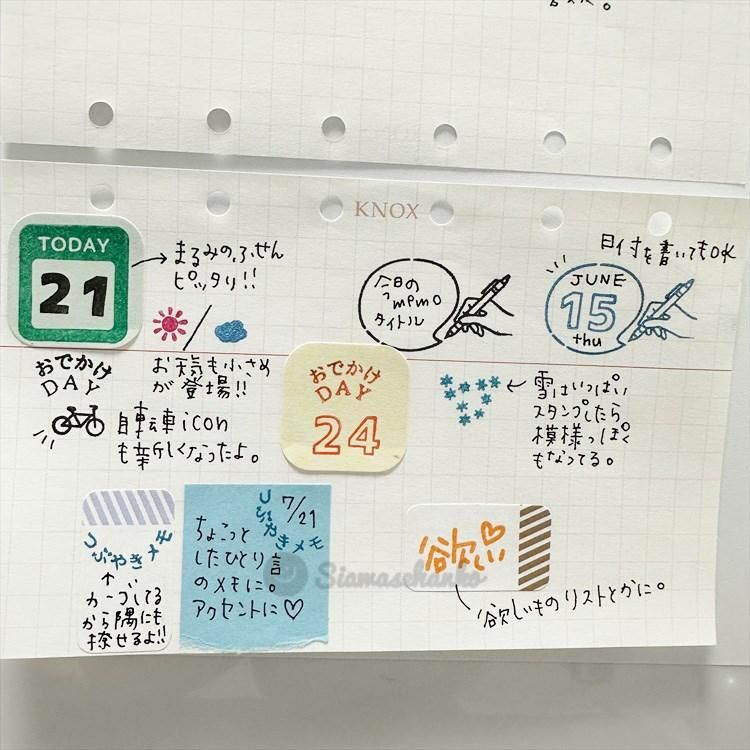 KNOX
TODAY
21
まるみのふせん
ピッタリ!!
今日の
memo
タイトル
日付を書いてもOK
JUNE
15
thu
おでかけ
DAY
お天気も小さめ
が登場!!
自転車icon
も新しくなったよ。
おでかけ
DAY
24
雪はいっぱい
スタンプしたら
模様っぽく
もなってる。
つぶやきメモ
カーブしてる
から隅にも
捺せるよ!!
7/21
つぶやきメモ
ちょこっと
したひとり言
のメモに。
アクセントに♡
Siamaschanko
欲しい
欲しいものリストとかに。